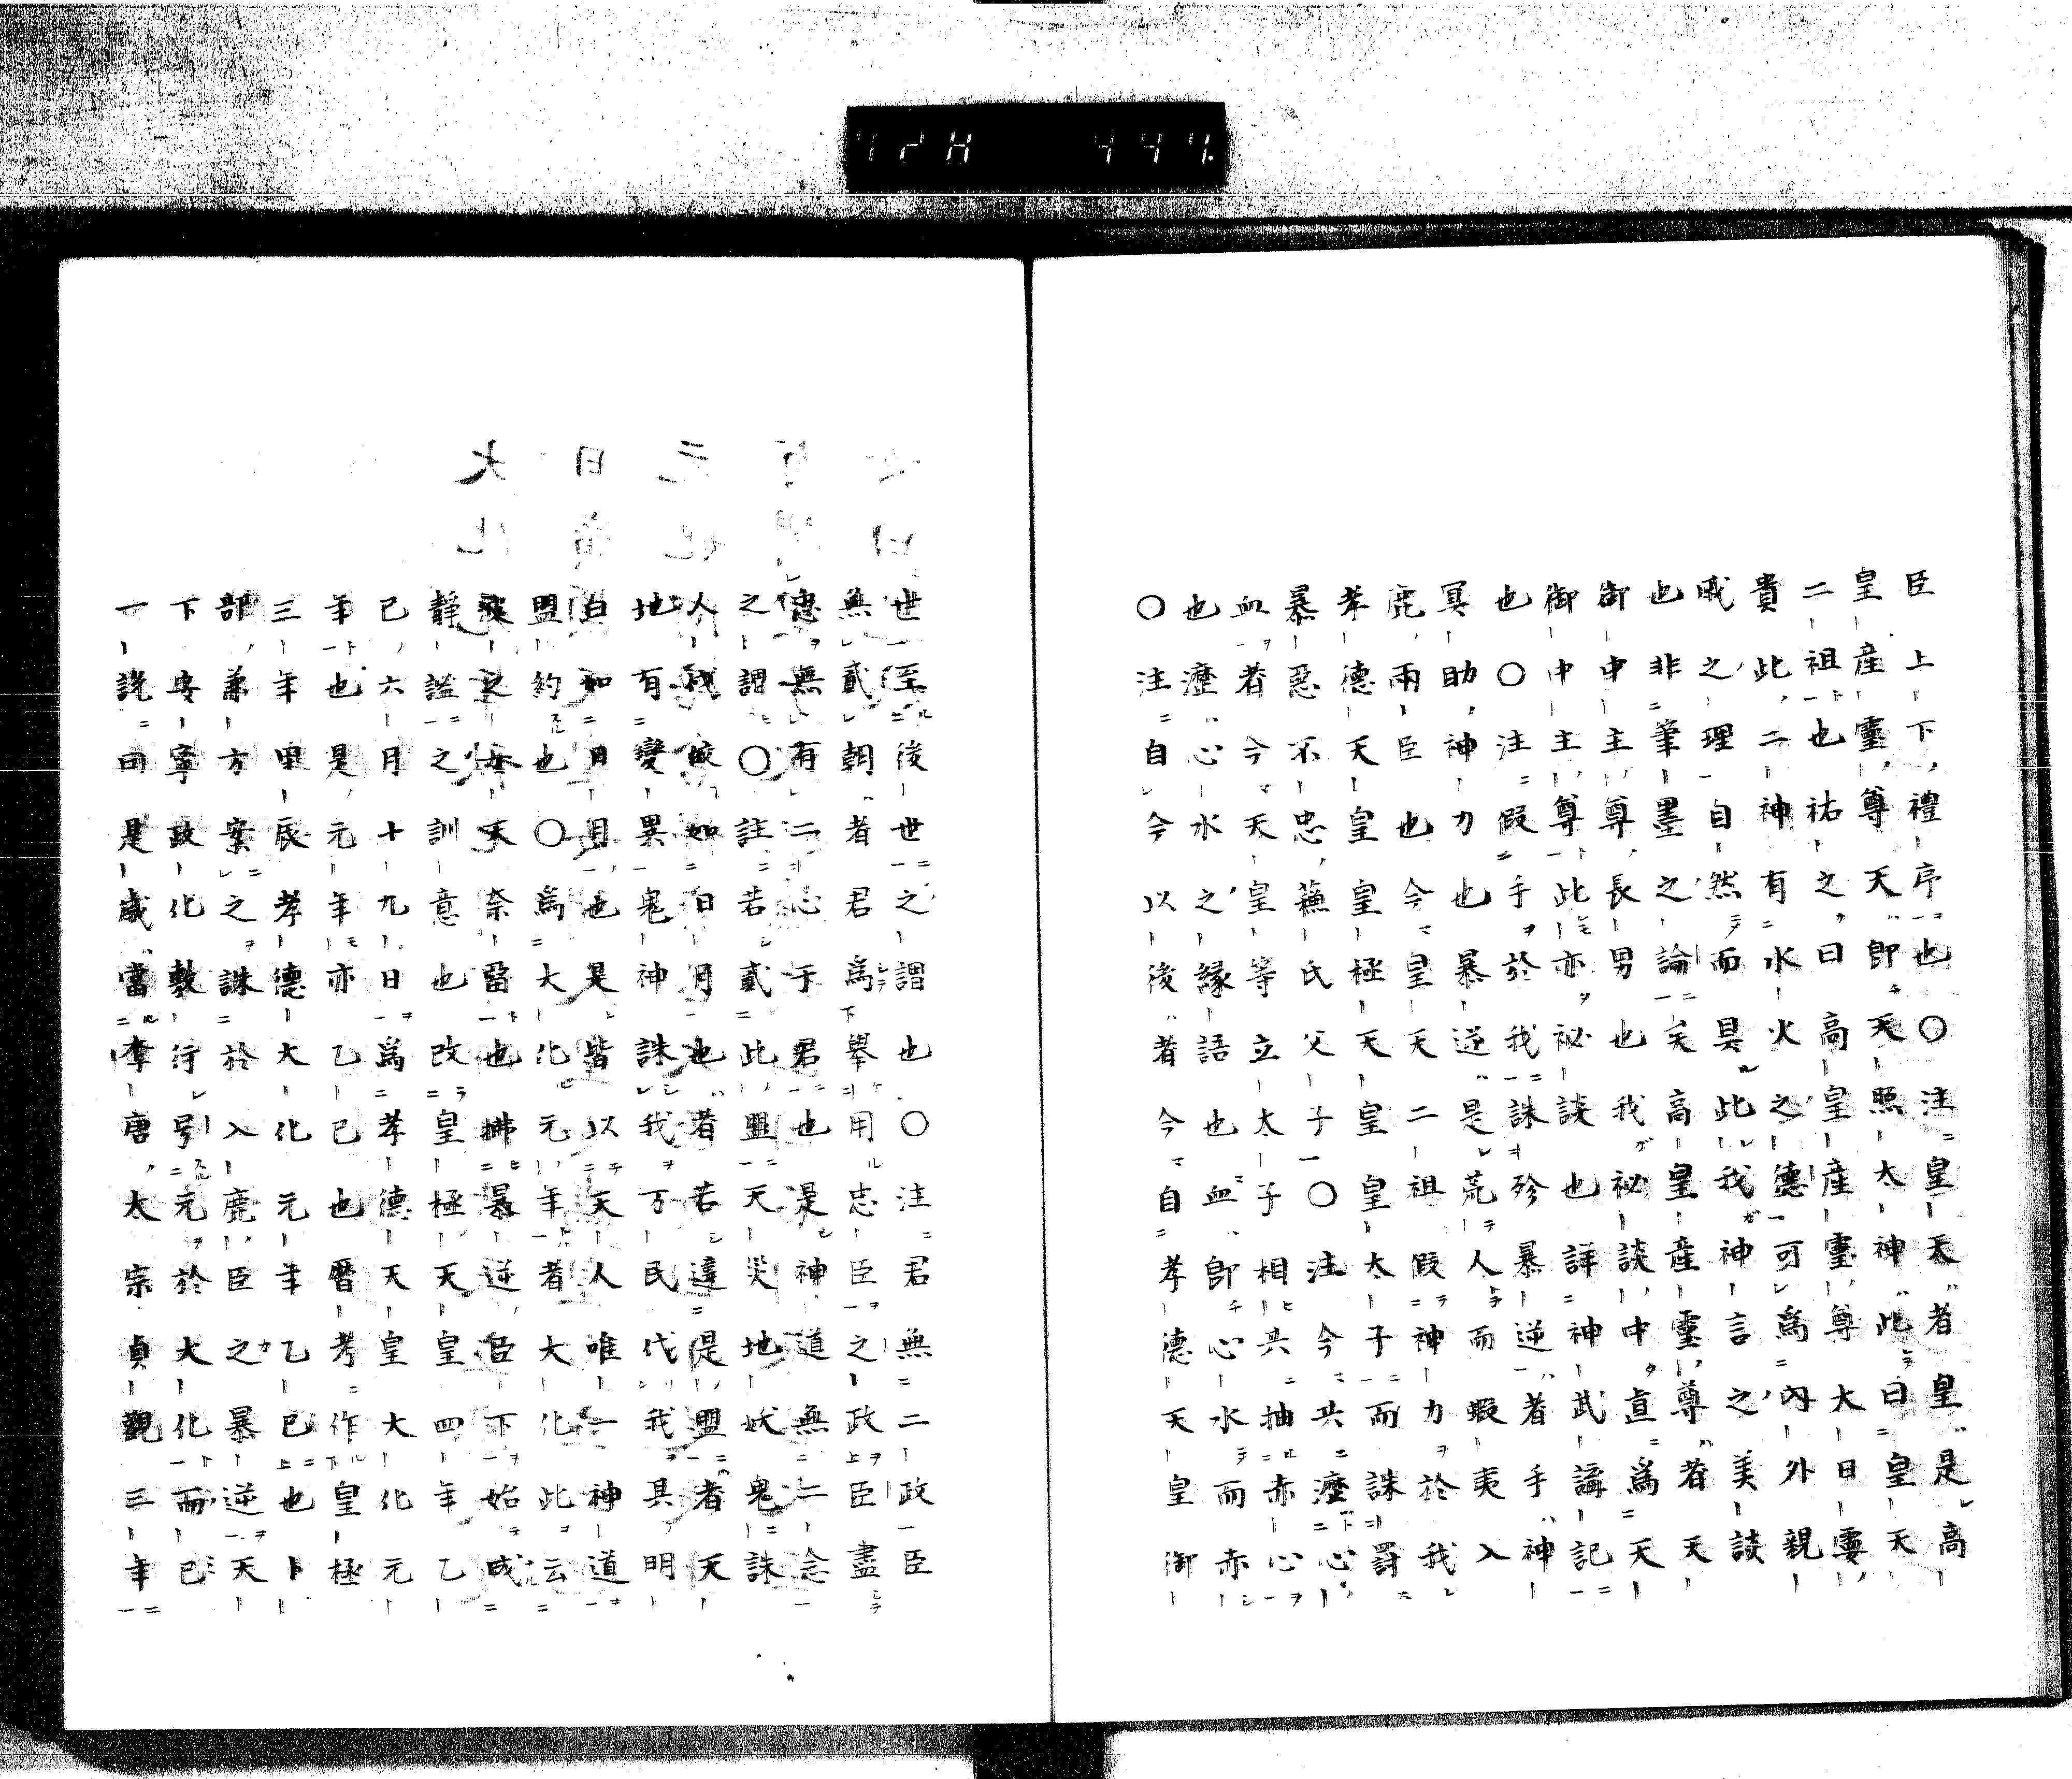 臣上下禮序也〇注皇天者皇是高
皇産靈尊天即天照太神此曰皇天
二祖也祐之曰高皇産靈尊大日孁
貴此二神有水火之德可爲內外親
戚之理自然而具此我神言之美談
也非筆墨之論矣高皇産靈尊者天
御中主尊長男也我祕談中直爲天
御中主尊此亦祕談也詳神武講記
也〇注假手於我誅殄暴逆者手神
冥助神力也暴逆是荒人而蝦夷入
鹿兩臣也今皇天二祖假神力於我
孝德天皇皇極天皇皇太子而誅罸
暴惡不忠蘓氏父子〇注今共瀝心
血者今天皇等立太子相共抽赤心
也瀝心水之緣語也血即心水而赤
〇注自今以後者今自孝德天皇御
世至後世之謂也〇注君無二政臣
無貳朝者君爲擧用忠臣之政臣盡
忠無有二心于君也是神道無二念
之謂〇註若貳此盟天災地妖鬼誅
人伐皎如日月也者若違是盟者天
地有變異鬼神誅我万民代我其明
白如日月也是皆以天人唯一神道
盟約也〇爲大化元年者大化此云
之每天奈留也拂暴逆臣下始成
靜謐之訓意也改皇極天皇四年乙
已六月十九日爲孝德天皇大化元
年也是元年亦乙已也曆考作皇極
三年甲辰孝德大化元年乙已也卜
部兼方案之誅於入鹿臣之暴逆天
下安寧政化敷行号元於大化而已
一說曰是歲當李唐太宗貞觀三年